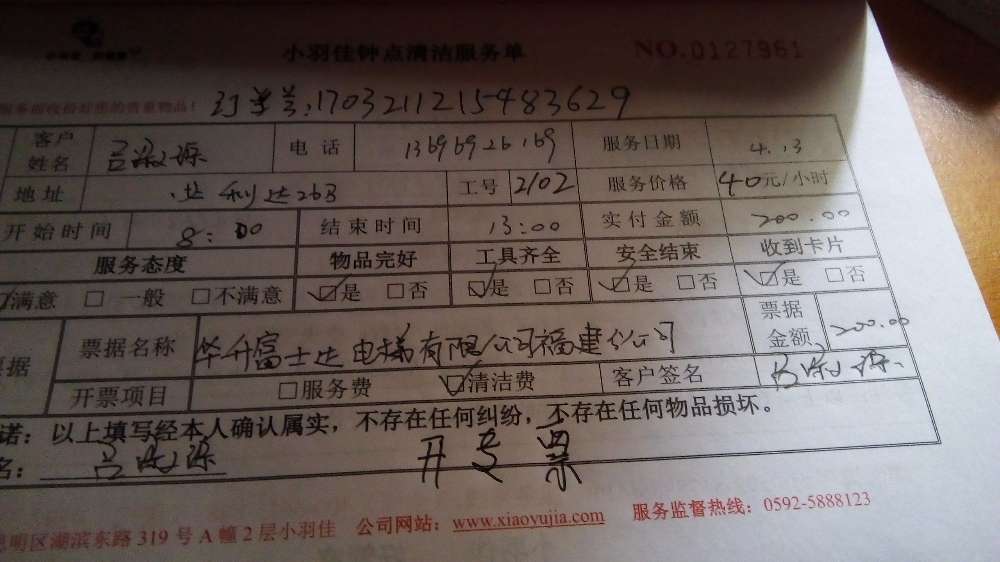 小羽佳钟点清洁服务单 NO.0127961
订单号:1703211215483629
客户姓名 吕 源 电话 13696926169 服务日期 4.13
地址 利达263 工号 2102 服务价格 40元/小时
开始时间 8:00 结束时间 13:00 实付金额 200.00
服务态度 物品完好 工具齐全 安全结束 收到卡片
☑满意 □一般 □不满意 ☑是 □否 ☑是 □否 ☑是 □否 ☑是 □否
票据名称 华升富士达电梯有限公司福建分公司 票据金额 200.00
开票项目 □服务费 ☑清洁费 客户签名 吕 源
诺:以上填写经本人确认属实,不存在任何纠纷,不存在任何物品损坏。
名: 吕 源 开专票
思明区湖滨东路319号A幢2层小羽佳 公司网站:www.xiaoyujia.com 服务监督热线:0592-5888123